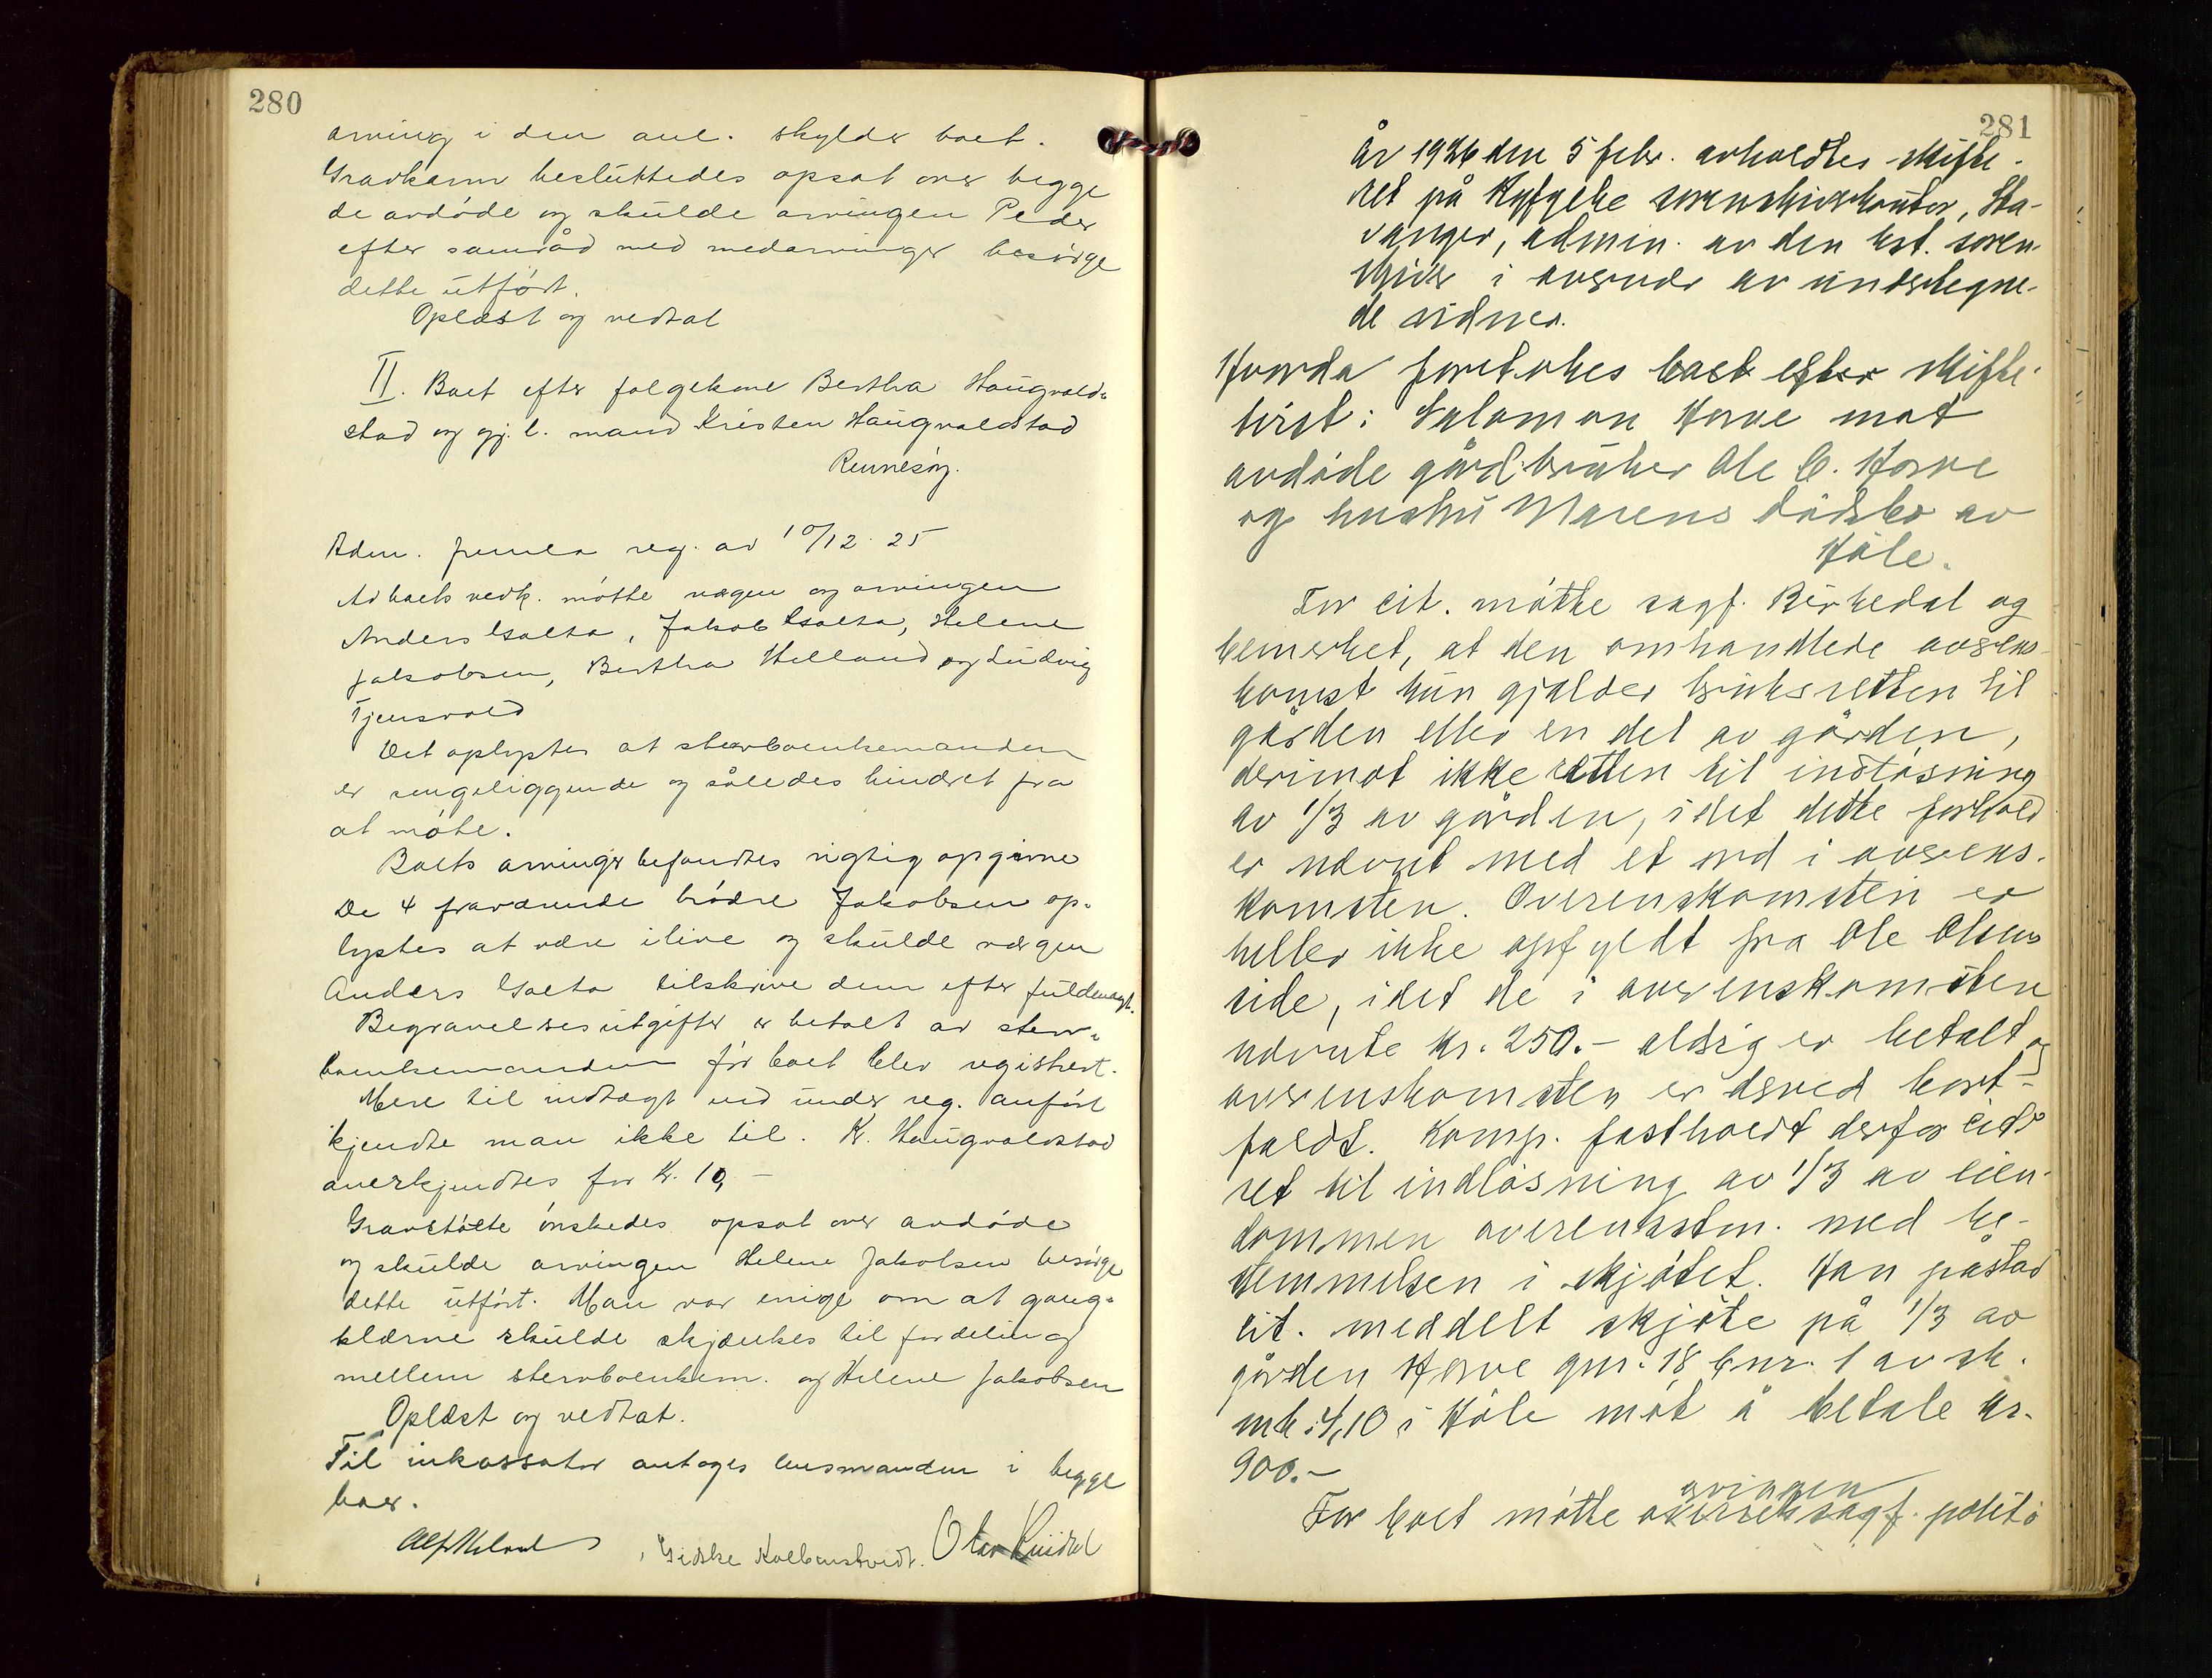 280
arving i den anl. skylder boet.
Gravkarm besluttedes opsat over begge
de avdøde og skulde arvingen Peder
efter samråd med medarvinger besørge
dette utført.
Oplæst og vedtat
II. Boet efter folgekone Bertha Haugvald-
stad og gj. l. mand Kristen Haugvaldstad
Rennesøy.
Adm. jevnla reg. av 10/12 25
Av boets vedk. møtte vægen og arvingen
Anders Galta, Jakob Galta, Helene
Jakobsen, Bertha Helland og Ludvig
Tjensvold
Det oplystes at stervboenkemanden
er sengeliggende og således hindret fra
at møte.
Boets arvinger befandtes rigtig opgivne
De 4 fraværende brødre Jakobsen op-
lystes at være ilive og skulde vægen
Anders Galta tilskrive dem efter fuldmagt.
Begravelsesutgifter er betalt av sterv-
boenkemanden før boet blev registrert.
Mere til indtægt end under reg. anført
kjendte man ikke til. K. Haugvaldstad
anerkjendtes for K. 10,-
Gravstøtte ønskedes opsat over avdøde
og skulde arvingen Helene Jakobsen besørge
dette utført. Man var enige om at gang-
klærne skulde skjænkes til fordeling
mellem stervboenkem. og Helene Jakobsen
Oplæst og vedtat.
Til inkassator antages lensmanden i begge
boer.
Gidske Kolbenstvedt.
281
År 1926 den 5 febr. avholdtes skifte-
ret på Ryfylke sorenskriverkontor, Sta-
vanger, admin. av den kst. soren-
skriver i overvær av undertegne-
de vidner.
Hvorda foretokes boet efter skifte-
tvist: Salomon Horve mot
avdøde gårdbruker Ole C. Horve
og hustru Marens dødsbo av
Høle.
For cit. møtte sagf. Birkedal og
bemerket, at den omhandlede overens-
komst kun gjælder bruksretten til
gården eller en del av gården,
derimot ikke retten til indløsning
av 1/3 av gården, idet dette forhold
er nævnt med et ord i overens-
komsten. Overenskomsten er
heller ikke opfyldt fra Ole Olsens
side, idet de i overenskomsten
nævnte kr. 250.- aldrig er betalt og
overenskomsten er derved bort-
faldt. Komp. fastholdt derfor cits
ret til indløsning av 1/3 av eien-
dommen overensstm. med be-
stemmelsen i skjøtet. Han påstod
cit. meddelt skjøte på 1/3 av
gården Horve gnr. 18 bnr. 1 av sk.
mk. 4,10 i Høle mot å betale kr.
900.-
arvingen
For boet møtte overretssagf. politi